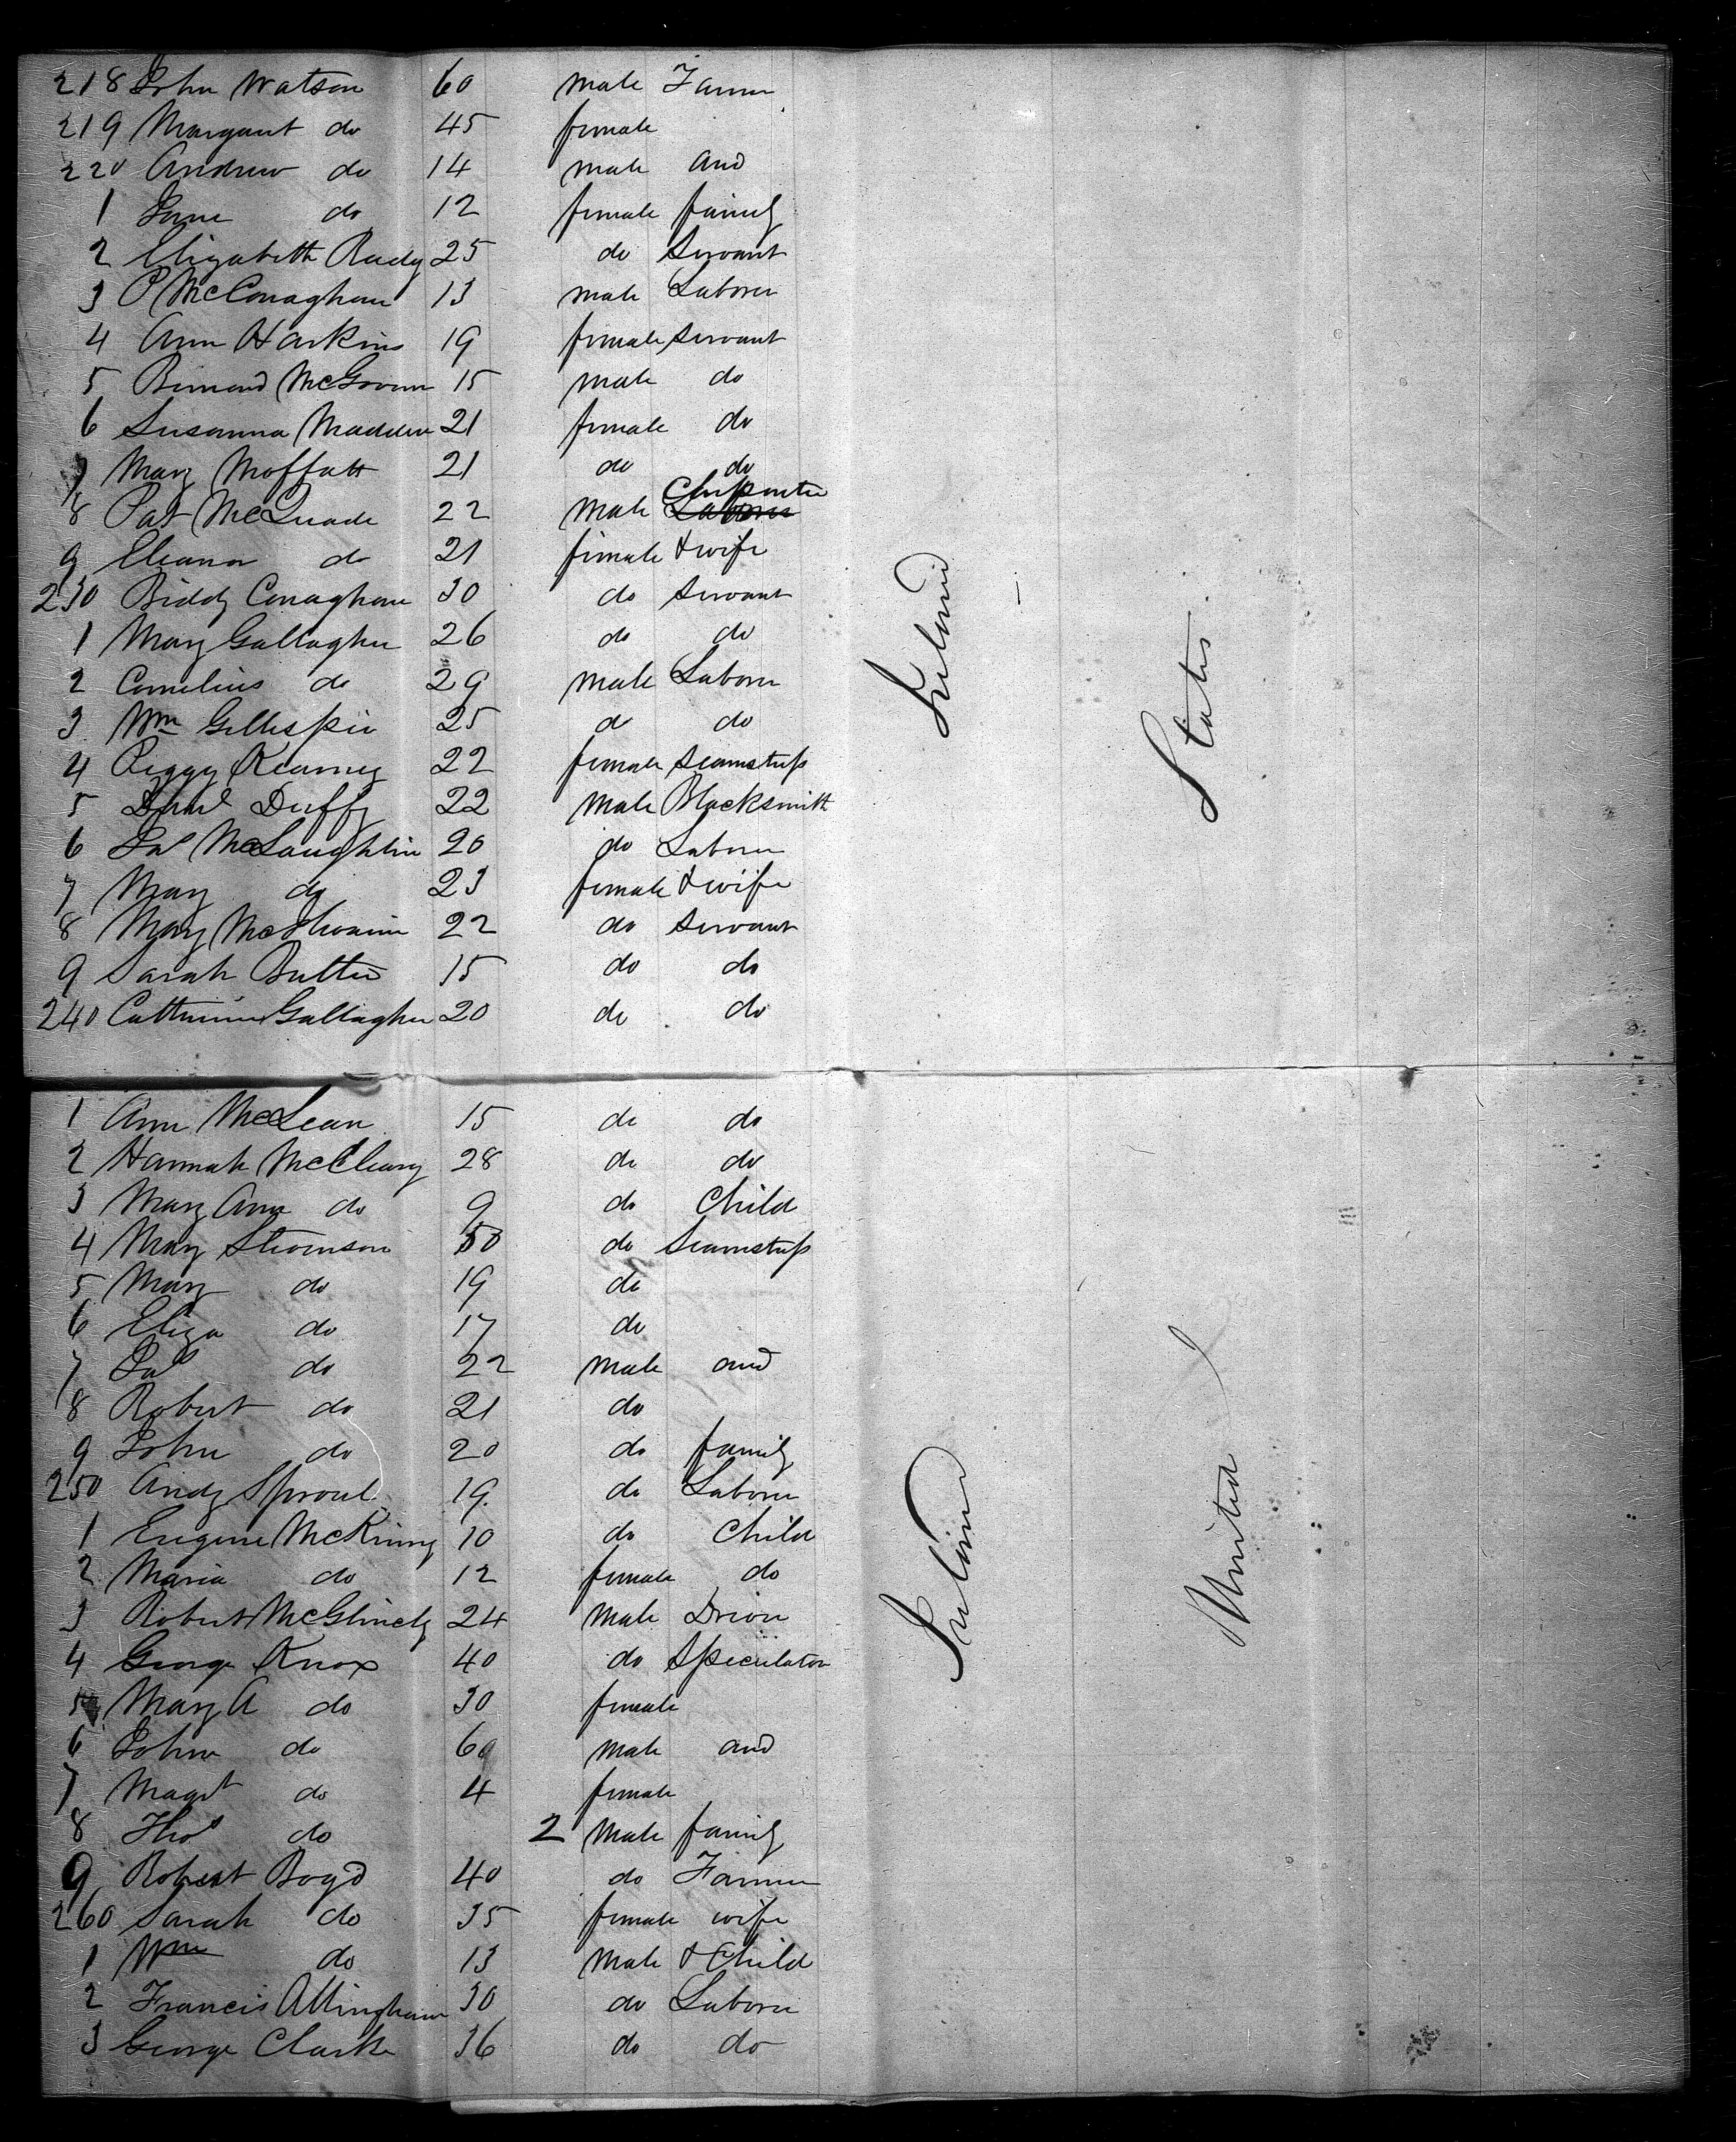 218 John Watson 60 male Farmer
219 Margaret do 45 female
220 Andrew do 14 male and
1 Jane do 12 female family
2 Elizabeth Rudy 25 do Servant
3 P McConaghan 13 male Laborer
4 Ann Harkins 19 female servant
5 Bernard McGovern 15 male do
6 Susanna Madden 21 female do
7 Mary Moffatt 21 do do
8 Pat McQuade 22 male Carpenter Laborer
9 Eleanor do 21 female & wife
230 Biddy Conaghan 30 do servant
1 Mary Gallagher 26 do do
2 Cornelius do 29 male Laborer
3 Wm Gillespie 25 do do
4 Peggy Kearney 22 female seamstress
5 Danl Duffy 22 male Blacksmith
6 Jas McLaughlin 20 do Laborer
7 Mary do 23 female & wife
8 Mary McIlwaine 22 do servant
9 Sarah Butler 15 do do
240 Catherine Gallagher 20 do do
Ireland
States
1 Ann McLean 15 do do
2 Hannah McCleary 28 do do
3 Mary Ann do 9 do Child
4 Mary Stevenson 50 do Seamstress
5 Mary do 19 do
6 Eliza do 17 do
7 Jas do 22 male and
8 Robert do 21 do
9 John do 20 do family
250 Andy Sproul 19 do Laborer
1 Eugene McKinny 10 do Child
2 Maria do 12 female do
3 Robert McGlinchy 24 male
4 George Knox 40 do Speculator
5 Mary A do 30 female
6 John do 6 male and
7 Magt do 4 female
8 Thos do 2 male family
9 Robert Boyd 40 do Farmer
260 Sarah do 35 female wife
1 Wm do 13 male & Child
2 Francis Allingham 30 do Laborer
3 George Clarke 36 do do
Ireland
United